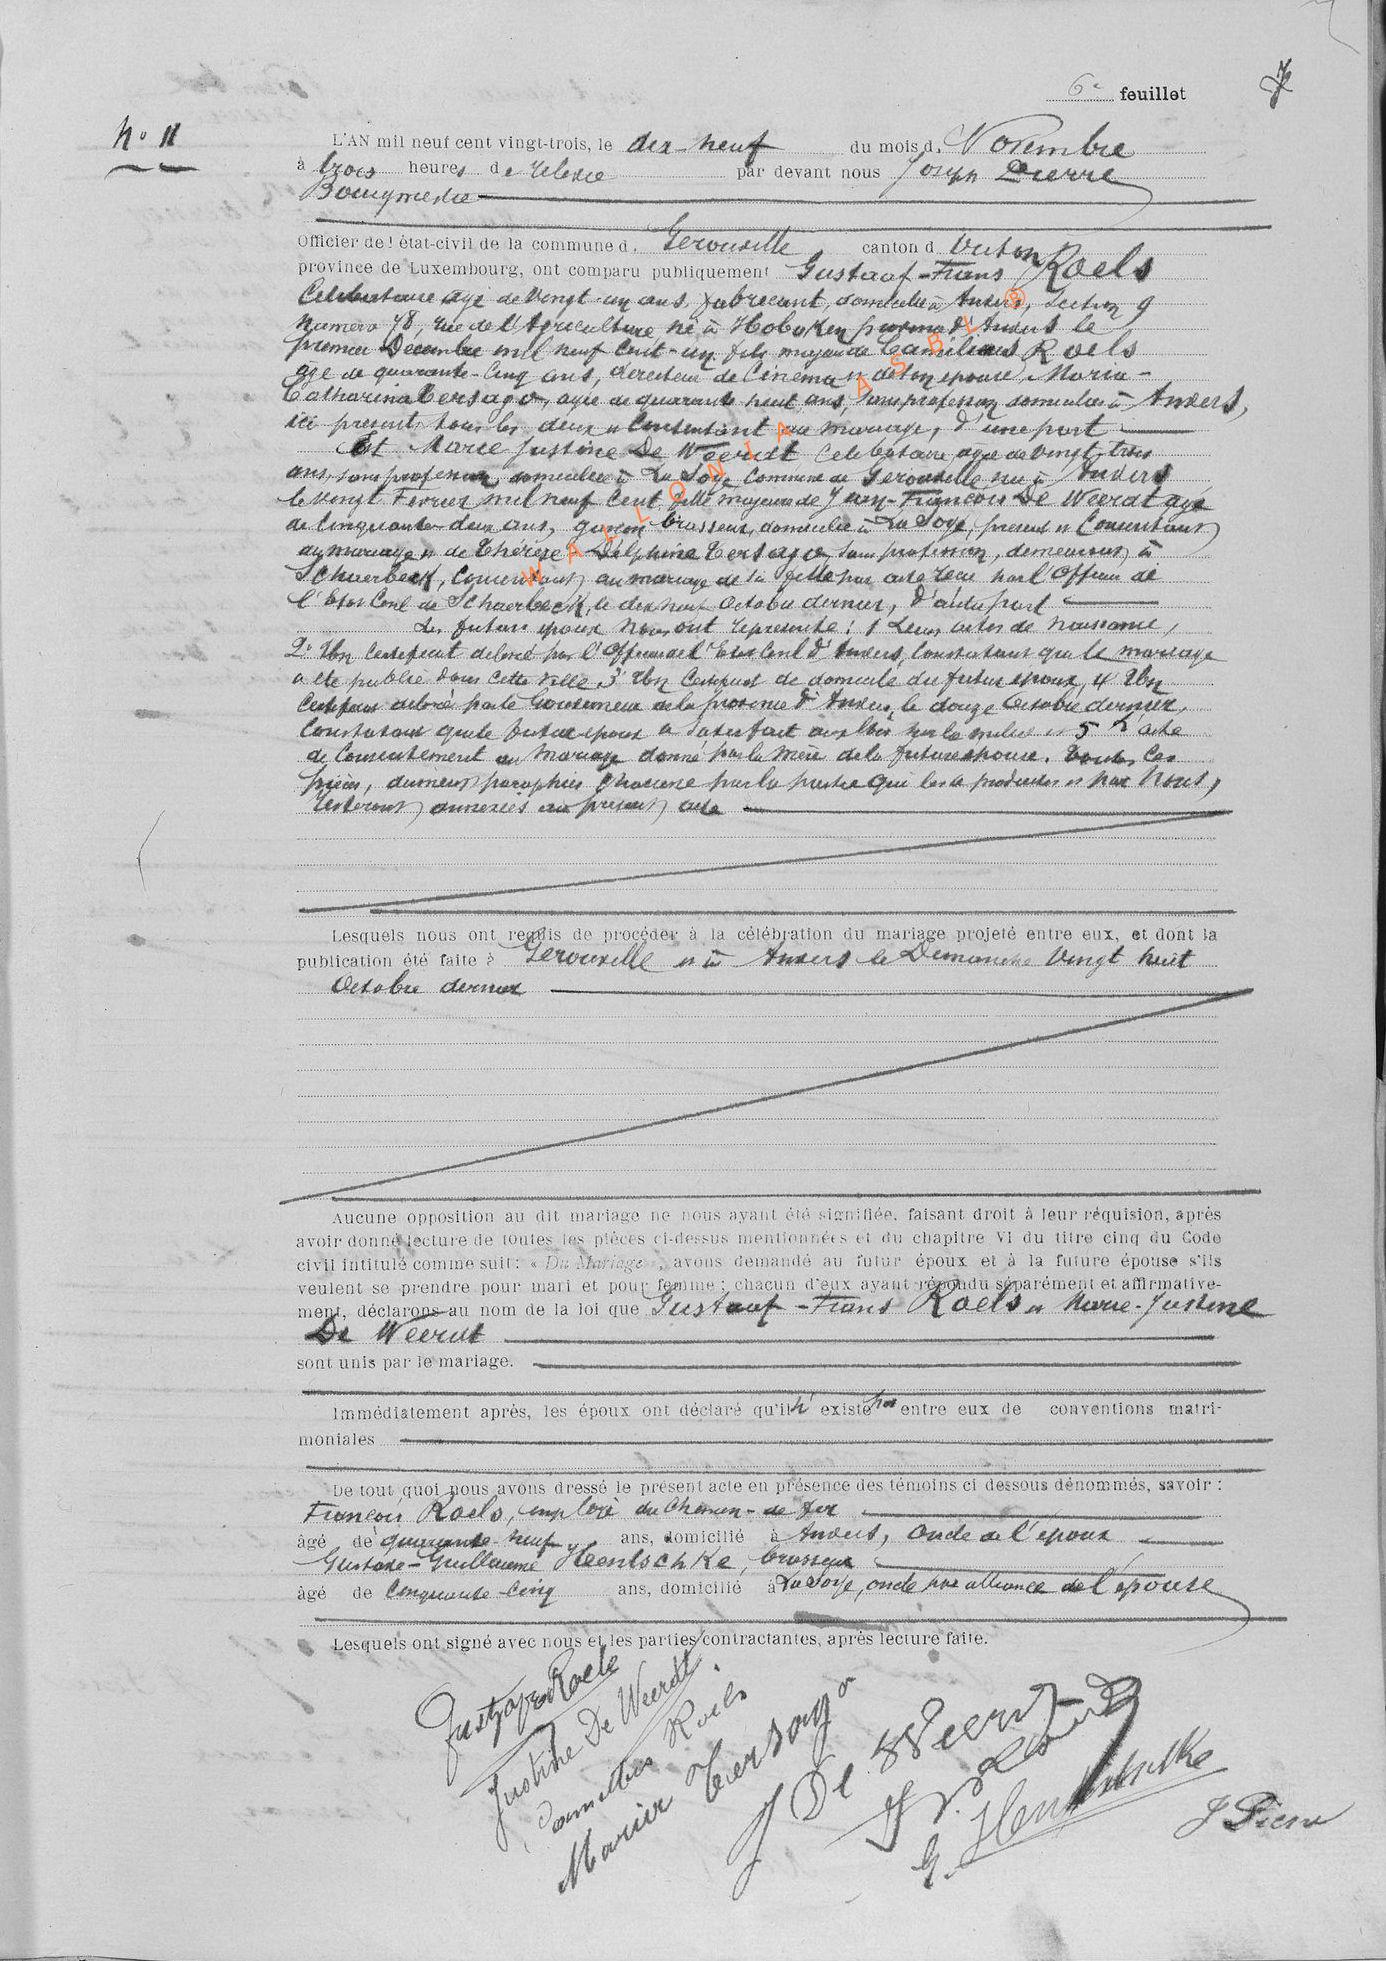 6e feuillet
No 11
L'AN mil neuf cent vingt-trois, le dix-neuf du mois d. Novembre
à trois heures de relevée par devant nous Joseph Pierre
Bourgmestre
Officier de l'état-civil de la commune d. Gerouville canton d Virton
province de Luxembourg, ont comparu publiquement Gustaaf-Frans Roels
Célibataire âgé de vingt-un ans, fabricant, domicilié à Anvers, Section 9
Numéro 78, rue de l'Agriculture né à Hoboken province d'Anvers le
premier Décembre mil neuf cent-un fils majeur de Camilius Roels
âgé de quarante-cinq ans, directeur de Cinéma et de son épouse Maria-
Catharina Tersago, agée de quarante huit ans, sans profession domiciliés à Anvers,
ici présents tous les deux et consentant au mariage, d'une part
Et Marie Justine De Weerdt Célibataire agée de vingt trois
ans, sans profession domiciliée à La Soye Commune de Gerouville née à Anvers
le vingt Février mil neuf cent fille majeure de Jean-François De Weerdt agé
de Cinquante-deux ans, garçon brasseur, domicilié à La Soye, présent et Consentant
au mariage et de Thérèse-Delphine Tersago, sans profession, demeurant à
Schaerbeek, consentant au mariage de sa fille par acte reçu par l'Officier de
l'Etat Civil de Schaerbeek, le dix neuf Octobre dernier, d'autre part
Les futurs époux nous ont représenté: 1 Leurs actes de naissance,
2° Un Certificat délivré par l'Officier de l'Etat Civil d'Anvers, Constatant que le mariage
a été publié dans cette ville 3° Un Certificat de domicile du futur époux, 4 Un
Certificat délivré par le Gouverneur de la province d'Anvers, le douze Octobre dernier,
Constatant que le futur époux a satisfait aux lois sur la milice et 5 L'acte
de Consentement au mariage donné par la mère de la future épouse. Toutes ces
pièces, dûment paraphées chacune par la partie qui les a produites et par Nous,
resteront annexées au présent acte
Lesquels nous ont requis de procéder à la célébration du mariage projeté entre eux, et dont la
publication été faite à Gerouville et à Anvers le Dimanche Vingt huit
Octobre dernier
Aucune opposition au dit mariage ne nous ayant été signifiée, faisant droit à leur réquision, après
avoir donné lecture de toutes les pièces ci-dessus mentionnées et du chapitre VI du titre cinq du Code
civil intitulé comme suit: « Du Mariage », avons demandé au futur époux et à la future épouse s'ils
veulent se prendre pour mari et pour femme; chacun d'eux ayant répondu séparément et affirmative-
ment, déclarons au nom de la loi que Gustaaf-Frans Roels et Marie-Justine
De Weerdt
sont unis par le mariage.
Immédiatement après, les époux ont déclaré qu'il n'existe pas entre eux de conventions matri-
moniales
De tout quoi nous avons dressé le présent acte en présence des témoins ci dessous dénommés, savoir:
François Roels, employé du Chemin-de fer
âgé de quarante-neuf ans, domicilié à Anvers, oncle de l'époux
Gustave-Guillaume Hentschke, brasseur
âgé de Cinquante-cinq ans, domicilié à La Soye, oncle par alliance de l'épouse
Lesquels ont signé avec nous et les parties contractantes, après lecture faite.
Gustave Roels
Justine De Weerdt
Camillus Roels
Maria Tersago
J De Weerdt
G. Hentschke
J Pierre
WALLONIA ASBL ®